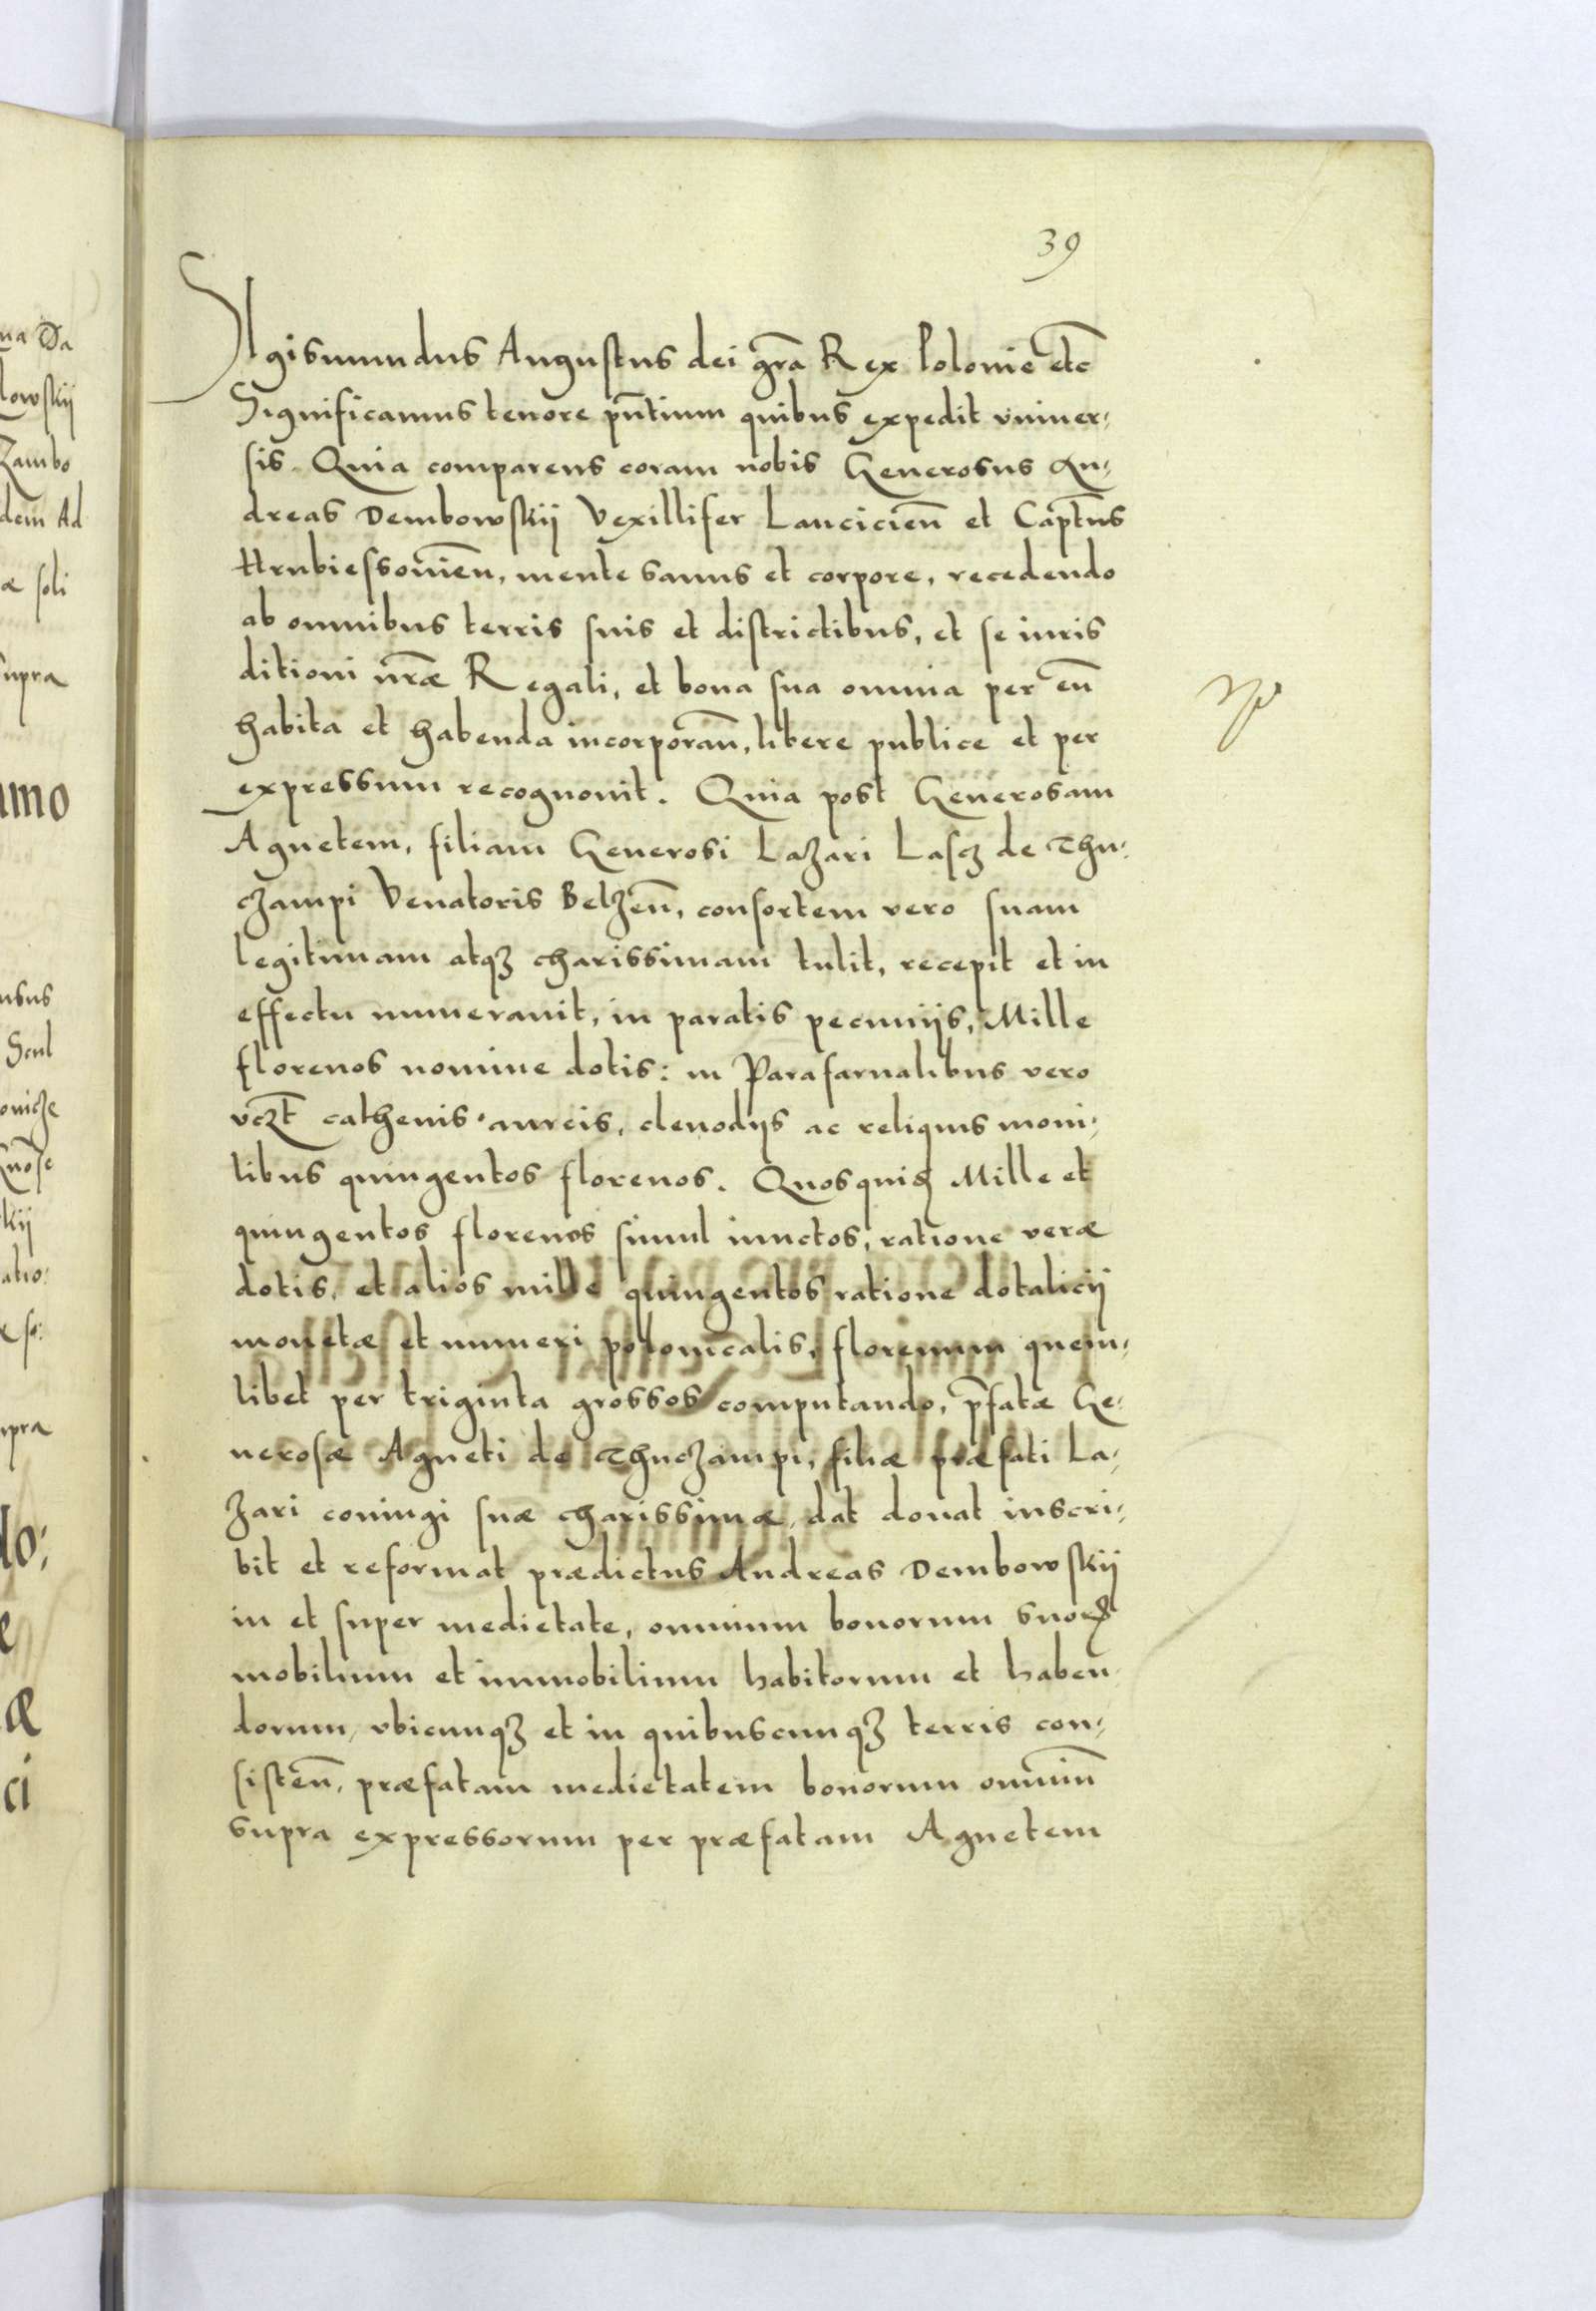 39
SIgismundus Augustus dei gr̃a Rex Polonie etc̃
Significamus tenore pñtium quibus expedit vniuer-
sis. Quia comparens coram nobis Generosus An-
dreas Dembowskij Vexillifer Lanciciẽn et Capt̃us
Hrubiessouieñ, mente sanus et corpore, recedendo
ab omnibus terris suis et districtibus, et se iuris
ditioni nr̃æ Regali, et bona sua omnia per eũ
habita et habenda incorporañ, libere publice et per
expressum recognouit. Quia post Generosam
Agnetem, filiam Generosi Lazari Lascz de Thu-
czampi Venatoris Belzeñ, consortem vero suam
legitimam atqꝫ charissimam tulit, recepit et in
effectu numerauit, in paratis pecunijs, Mille
florenos nomine dotis: in Parafarnalibus vero
vcꝫt cathenis aureis, clenodijs ac reliquis moni-
libus quingentos florenos. Quosquidꝫ Mille et
quingentos florenos simul iunctos, ratione veræ
dotis, et alios mille quingentos ratione dotalicij
monetæ et numeri polonicalis, florenum quem-
libet per triginta grossos computando, p̃fatæ Ge-
nerosæ Agneti de Thuczampi, filiæ præfati La-
zari coniugi suæ charissimæ, dat donat inscri-
bit et reformat prædictus Andreas Dembowskij
in et super medietate, omnium bonorum suorꝝ
mobilium et immobilium habitorum et haben-
dorum, vbicunqꝫ et in quibuscunqꝫ terris con-
sisteñ, præfatam medietatem bonorum omniũ
supra expressorum per præfatam Agnetem